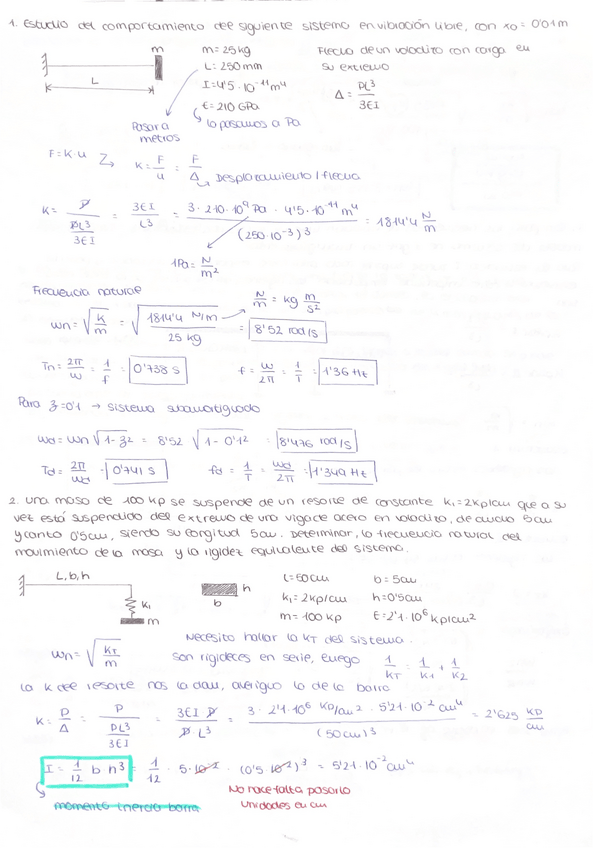 1. Estudio del comportamiento del siguiente sistema en vibración libre, con x0 = 0'01m
m
L
m = 25 kg
L = 250 mm
I = 4'5 · 10^-11 m^4
E = 210 GPa
Pasar a metros
lo pasamos a Pa
Flecha de un voladizo con carga en
su extremo
Δ = PL^3 / 3EI
F = K · u → K = F/u = F/Δ → Desplazamiento / flecha
K = P / (PL^3/3EI) = 3EI / L^3 = 3 · 210 · 10^9 Pa · 4'5 · 10^-11 m^4 / (250 · 10^-3)^3 = 1814'4 N/m
1Pa = N/m^2
Frecuencia natural
N/m = kg m/s^2
wn = √(K/m) = √(1814'4 N/m / 25 kg) = 8'52 rad/s
Tn = 2π/w = 1/f = 0'738 s
f = w/2π = 1/T = 1'36 Hz
Para ξ = 0'1 → sistema subamortiguado
wd = wn √(1-ξ^2) = 8'52 √(1-0'1^2) = 8'476 rad/s
Td = 2π/wd = 0'741 s
fd = 1/T = wd/2π = 1'349 Hz
2. Una masa de 100 kp se suspende de un resorte de constante k1 = 2kp/cm que a su
vez está suspendido del extremo de una viga de acero en voladizo, de ancho 5cm
y canto 0'5cm, siendo su longitud 5cm. Determinar, la frecuencia natural del
movimiento de la masa y la rigidez equivalente del sistema.
L, b, h
K1
m
h
b
l = 50cm
k1 = 2kp/cm
m = 100 kp
b = 5cm
h = 0'5cm
E = 2'1 · 10^6 kp/cm^2
wn = √(KT/m)
Necesito hallar la KT del sistema.
son rigideces en serie, luego 1/KT = 1/K1 + 1/K2
La K del resorte nos la dan, averiguo la de la barra
K = P/Δ = P / (PL^3/3EI) = 3EI P / P · L^3 = 3 · 2'1 · 10^6 kp/cm^2 · 5'21 · 10^-2 cm^4 / (50 cm)^3 = 2'625 kp/cm
I = 1/12 b h^3 = 1/12 · 5 · 10^-2 · (0'5 · 10^-2)^3 = 5'21 · 10^-2 cm^4
momento inercia barra
No hace falta pasarlo
unidades en cm